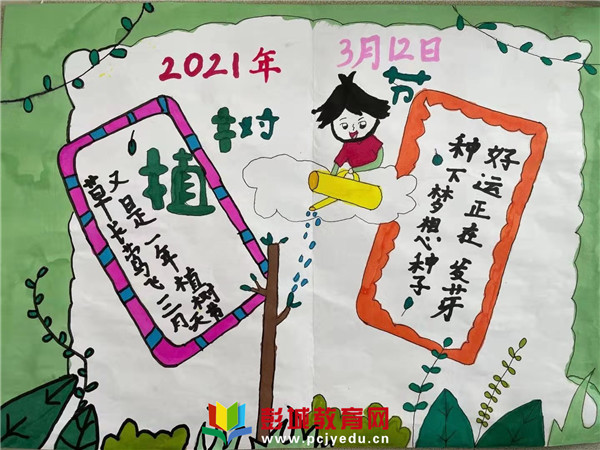 2021年
3月12日
植树节
草长莺飞三月天
又是一年植树节
种下梦想种子
好运正在发芽
彭城教育网
www.pcjyedu.cn